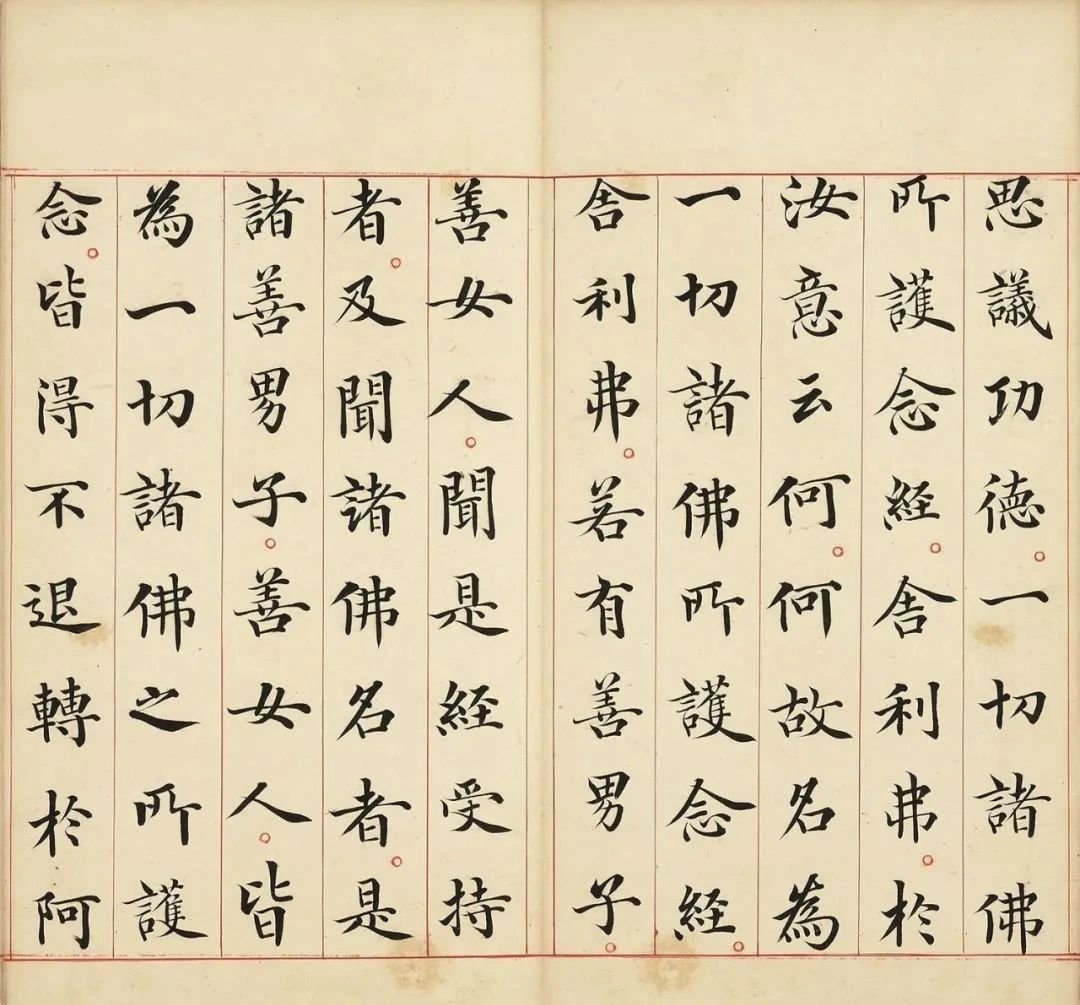 思議功德。一切諸佛
所護念経。舎利弗。於
汝意云何。何故名為
一切諸佛所護念経。
舎利弗。若有善男子。
善女人。聞是経受持
者。及聞諸佛名者。是
諸善男子。善女人。皆
為一切諸佛之所護
念。皆得不退轉於阿